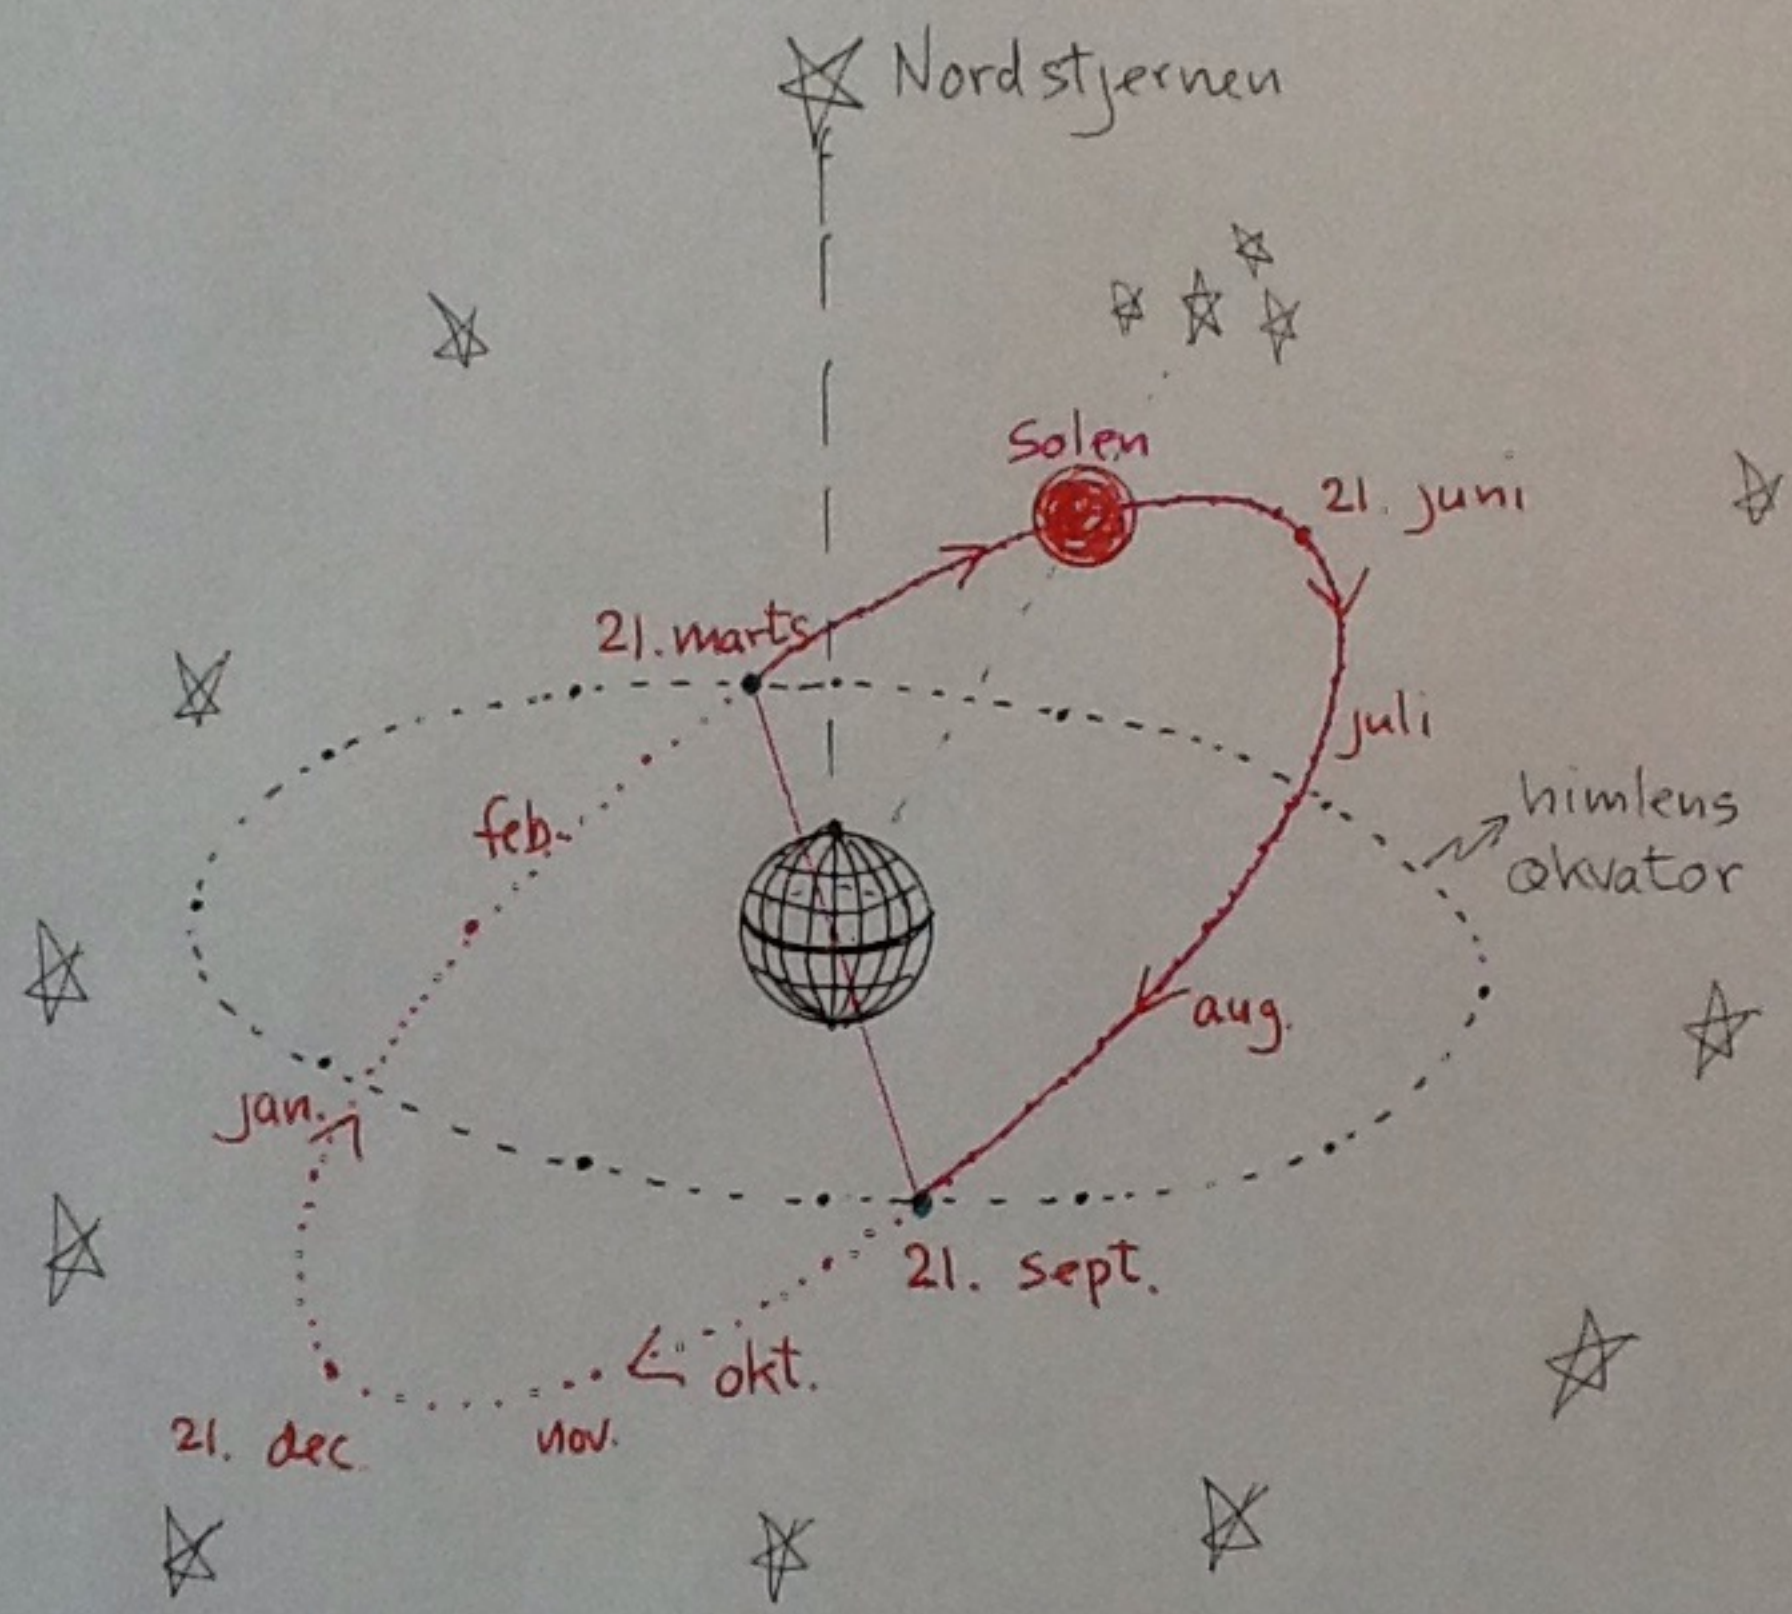 Nordstjernen
Solen
21. juni
21. marts
juli
himlens
ækvator
feb.
aug.
jan.
21. sept.
okt.
nov.
21. dec